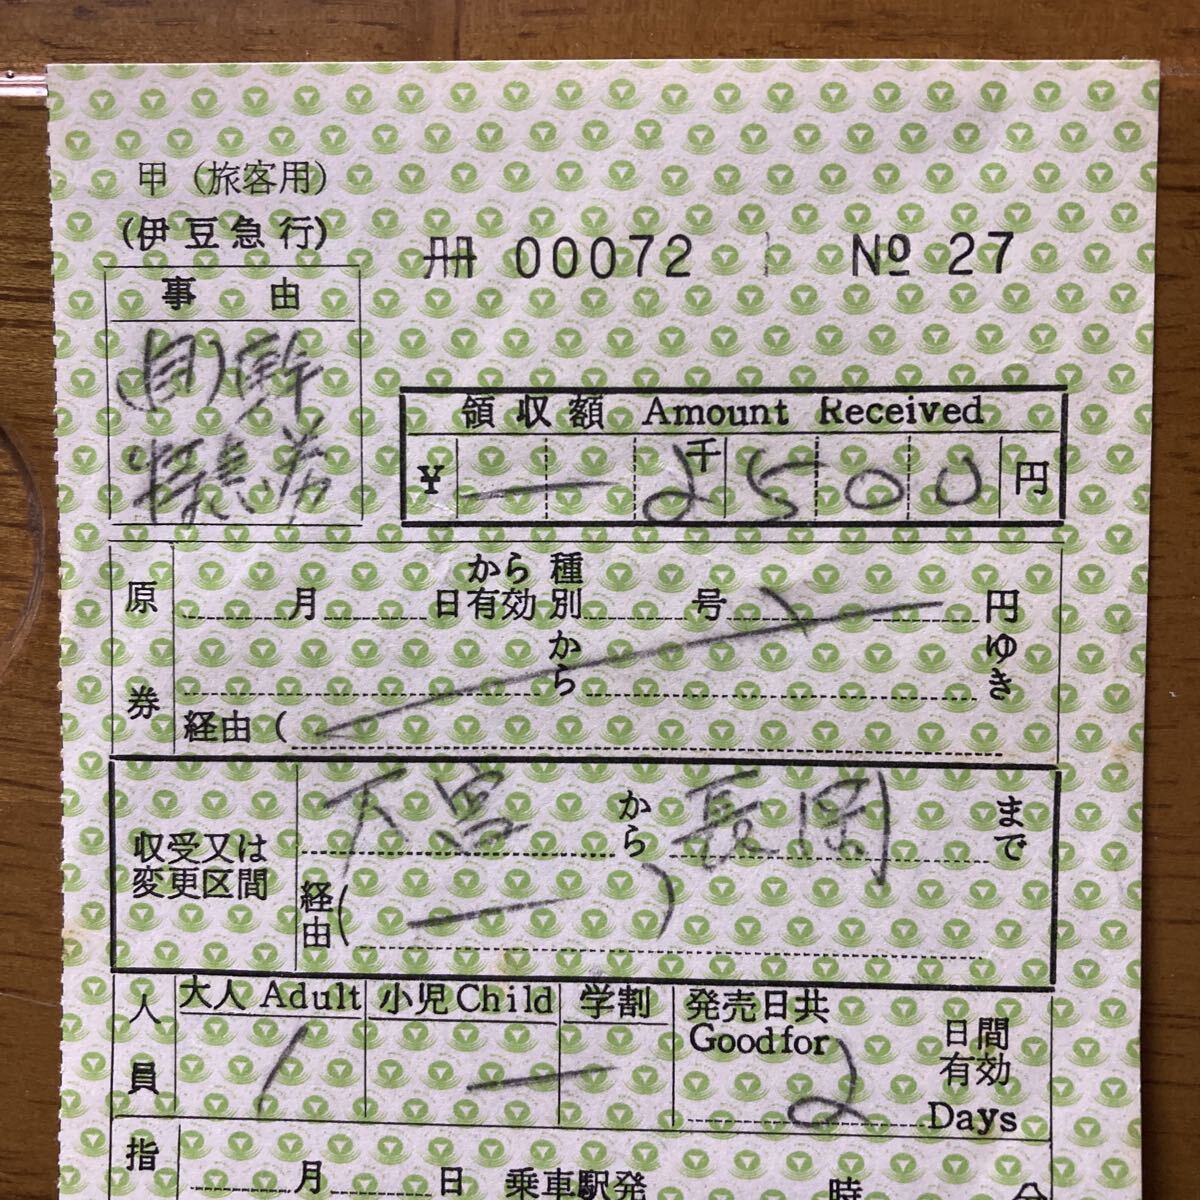 甲（旅客用）
（伊豆急行）
冊 00072 № 27
事 由
(自)幹
特急券
領収額 Amount Received
￥ — 2千500円
原券
月 日から有効 種別 号 円
から ゆき
経由（
収受又は変更区間
大宮から長岡まで
経由（—）
人員
大人 Adult 小児 Child 学割 発売日共 日間有効
1 — Good for 2 Days
指
月 日 乗車駅発 時 分